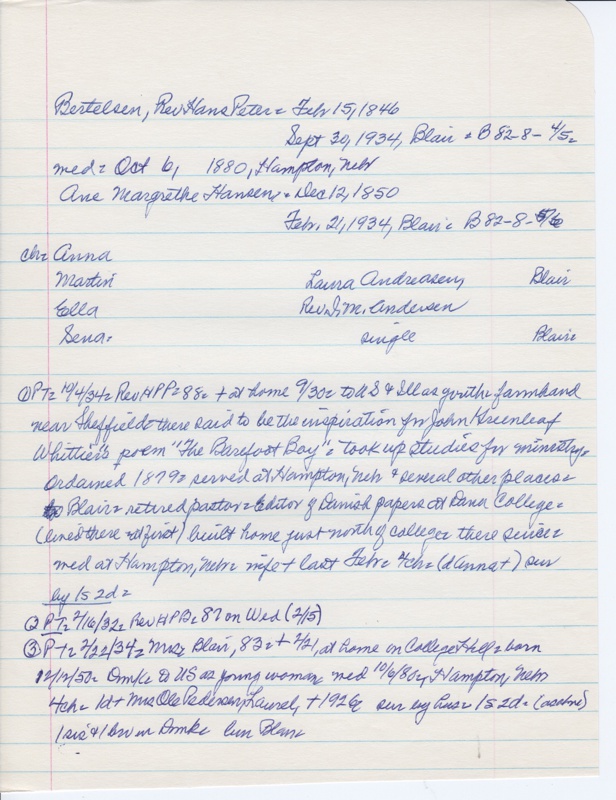 Bertelsen, Rev Hans Peter = Feb 15, 1846
Sept 30, 1934, Blair = B 82-8-4/5=
med = Oct 6, 1880, Hampton, Nebr
Ane Margrethe Hansen, = Dec 12, 1850
Feb. 21, 1934, Blair = B 82-8-
ch = Anna
Martin Laura Andreasen, Blair
Ella Rev I. M. Andersen
Sena = single Blair =
① PT = 10/4/34 = Rev HPB = 88 = + at home 9/30 = to US & Ill as youth = farmhand
near Sheffield = there said to be the inspiration for John Greenleaf
Whittier's poem "The Barefoot Boy" = took up studies for ministry =
Ordained 1879 = served at Hampton, Nebr & several other places =
Blair = retired pastor = Editor of Danish papers at Dana College =
(lived there at first) built home just north of college = there since =
med at Hampton, Nebr = wife + last Feb = 4ch = (d Anna +) sur
by 1s 2d =
② PT = 2/16/32 = Rev HPB = 87 on Wed (2/5)
③ PT = 2/22/34 = Mrs = Blair, 83 = + 2/21, at home on College Hill = born
12/12/50 = Dmk = to US as young woman, med 10/6/80, Hampton, Nebr
4ch = 1d + Mrs Ole Pedersen, Laurel, + 1926, sur by hus = 1s 2d = (as above)
1 sis & 1 bro in Dmk = bur Blair